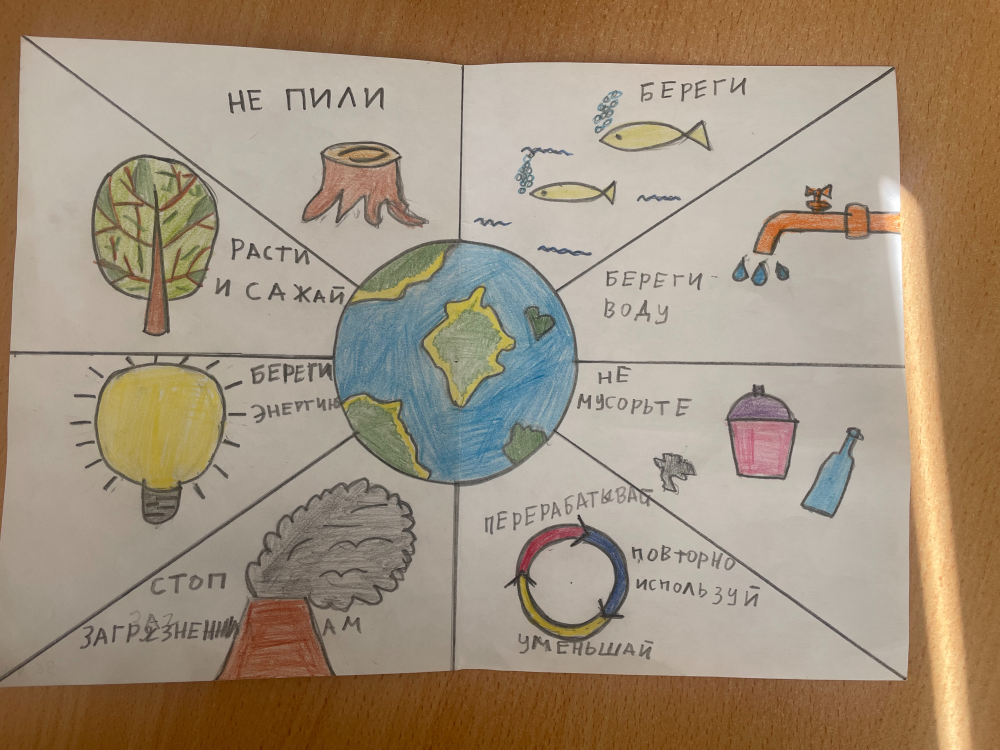 НЕ ПИЛИ
БЕРЕГИ
РАСТИ
И САЖАЙ
БЕРЕГИ
ВОДУ
БЕРЕГИ
ЭНЕРГИЮ
НЕ
МУСОРЬТЕ
СТОП
ЗАГРЯЗНЕНИЯМ
ПЕРЕРАБАТЫВАЙ
ПОВТОРНО
ИСПОЛЬЗУЙ
УМЕНЬШАЙ